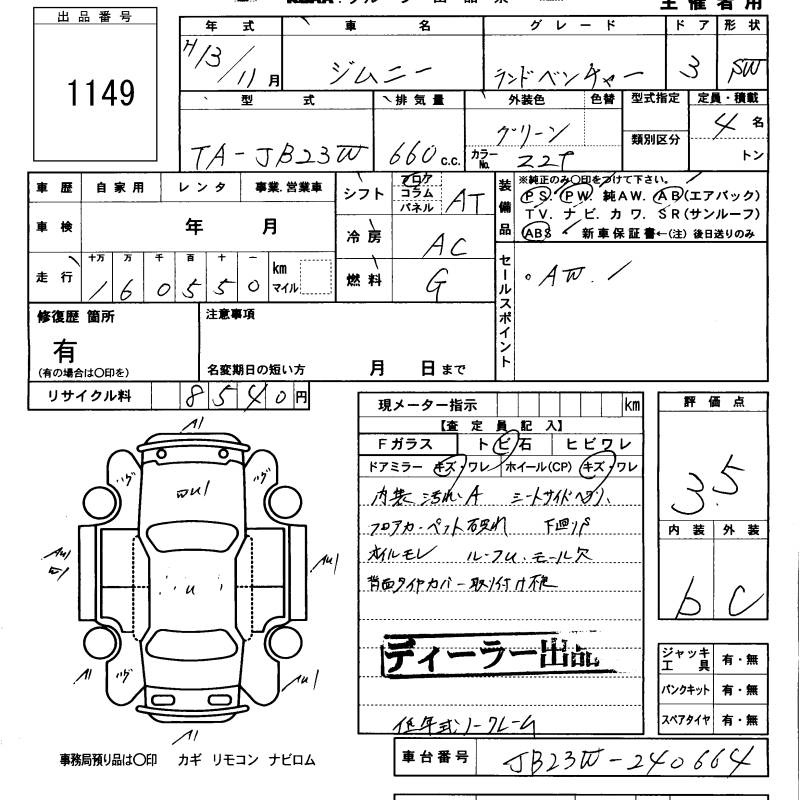 主催者用
出品番号
1149
年式 車名 グレード ドア 形状
H13/11月 ジムニー ランドベンチャー 3 SW
型式 排気量 外装色 色替 型式指定 定員・積載
TA-JB23W 660c.c. グリーン 類別区分 4名
カラーNo. ZZT トン
車歴 自家用 レンタ 事業.営業車
シフト フロア コラム パネル AT
装備品 ※純正のみ○印をつけて下さい。
PS. PW. 純AW. AB(エアバック)
TV. ナビ. カワ. SR(サンルーフ)
ABS 新車保証書←(注) 後日送りのみ
車検 年 月
冷房 AC
走行 十万 万 千 百 十 一 km マイル
160550
燃料 G
セールスポイント
・AW.
修復歴 箇所
有
(有の場合は○印を)
注意事項
名変期日の短い方 月 日まで
リサイクル料 8540円
現メーター指示 km
【査定員記入】
Fガラス トビ石 ヒビワレ
ドアミラー キズ・ワレ ホイール(CP) キズ・ワレ
内装 汚れ.A シートサイドヘリ.
フロアカーペット 下廻りP
オイルモレ ルーフU.モール欠
背面タイヤカバー取り付け
ディーラー出品
低年式ノークレーム
評価点
3.5
内装 外装
b C
ジャッキ工具 有・無
パンクキット 有・無
スペアタイヤ 有・無
A1
U1
U1
A1
A1
U1
A1
事務局預り品は○印 カギ リモコン ナビロム
車台番号 JB23W-240664